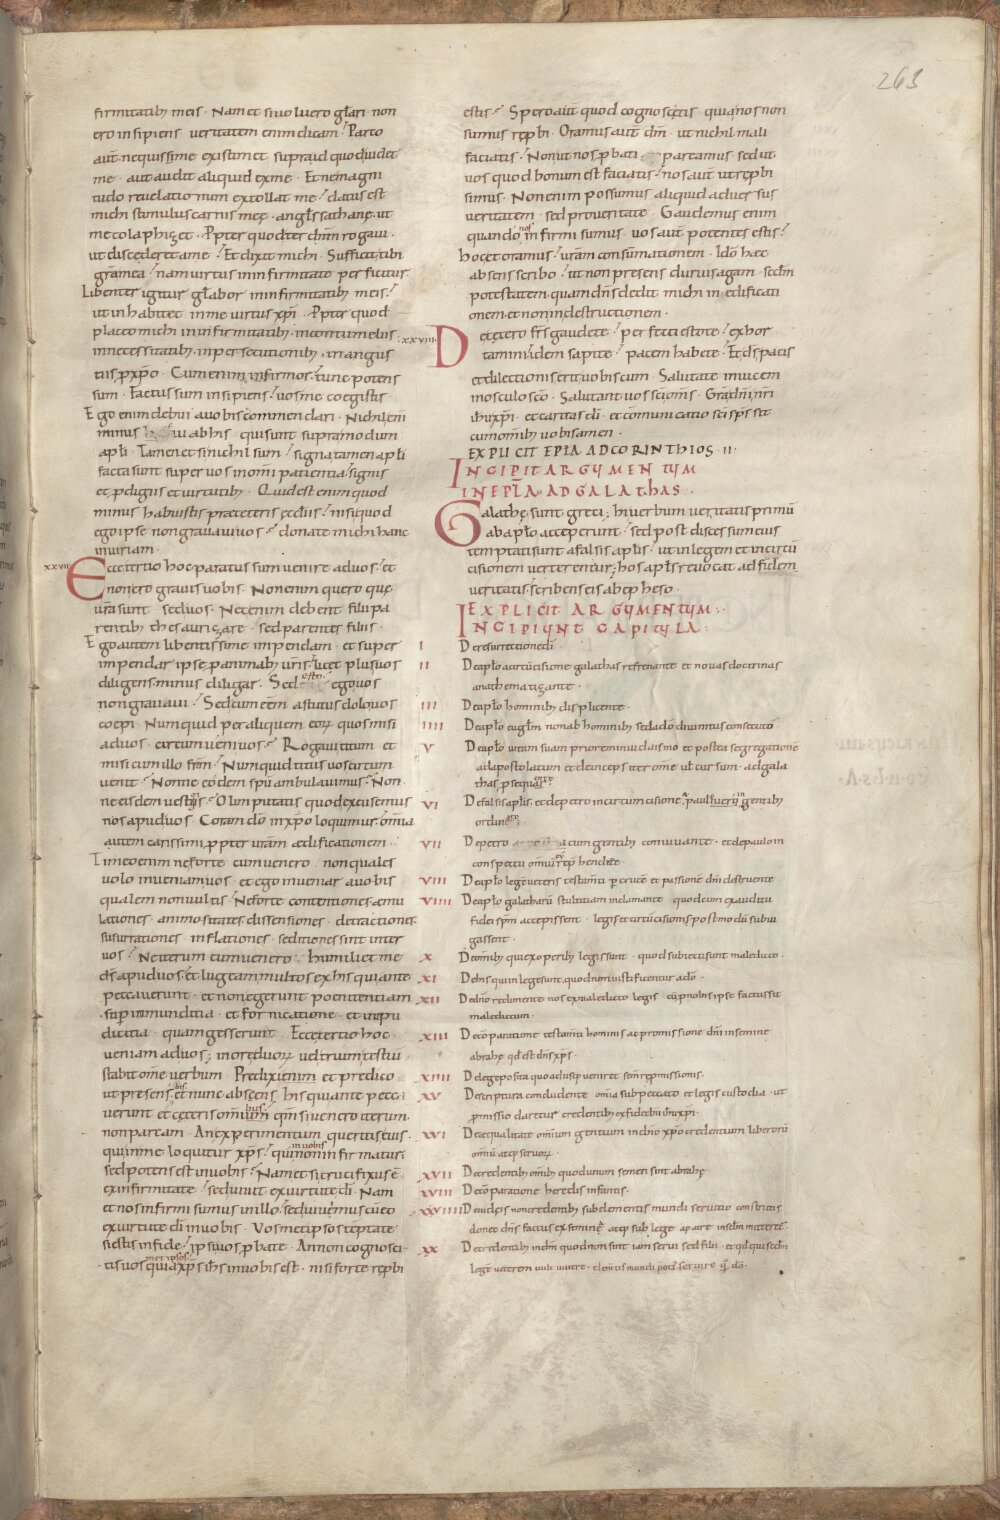 263
firmitatib; meis · Nam et si voluero gl̄ari non
ero insipiens · veritatem enim dicam · Parco
aut̄ ne quis me existimet supra id quod videt
me · aut audit aliquid ex me · Et ne magni
tudo revelationum extollat me · datus est
michi stimulus carnis meę · angl̄s sathanę · ut
me colaphizet · Ppter quod ter dn̄m rogavi ·
ut discederet a me · Et dixit michi · Sufficit tibi
gr̄a mea · nam virtus in infirmitate perficitur
Libenter igitur gl̄abor in infirmitatib; meis ·
ut inhabitet in me virtus xp̄i · Ppter quod
placeo michi in infirmitatib; · in contumeliis
in necessitatib; · in persecutionib; · in angus
tiis p xp̄o · Cum enim infirmor · tunc potens
sum · Factus sum insipiens · vos me coegistis ·
Ego enim debui a vobis cōmendari · Nichil eni
minus fui ab his qui sunt supra modum
apl̄i · Tamen et si nichil sum · signa tamen apl̄i
facta sunt super vos in om̄i patientia · signis
et pdigiis et virtutib; · Quid est enim quod
minus habuistis pre ceteris ęccl̄iis · nisi quod
ego ipse non gravavi vos · donate michi hanc
iniuriam ·
xxvii
Ecce tertio hoc paratus sum venire ad vos · et
non ero gravis vobis · Non enim quero quę
vr̄a sunt · sed vos · Nec enim debent filii pa
rentib; thesaurizare · sed parentes filiis ·
Ego autem libentissime impendam · et super
impendar ipse p animab; vr̄is · licet plus vos
diligens · minus diligar · Sed esto · ego vos
non gravavi · Sed cum eēm astutus dolo vos
coepi · Numquid per aliquem eorū quos misi
ad vos · circumveni vos · Rogavi titum · et
misi cum illo frēm · Numquid titus vos circum
venit · Nonne eodem spū ambulavimus · Non
ne eisdem vestigiis · Olim putatis quod excusemus
nos apud vos · Coram dō in xp̄o loquimur · om̄ia
autem carissimi ppter vr̄am ædificationem ·
Timeo enim ne forte cum venero · non quales
volo inveniam vos · et ego inveniar a vobis
qualem non vultis · Ne forte contentiones · æmu
lationes · animositates · dissensiones · detractiones
susurrationes · inflationes · seditiones sint inter
vos · Ne iterum cum venero · humiliet me
ds̄ apud vos · et lugeam multos ex his qui ante
peccaverunt · et non egerunt poenitentiam
sup inmunditia · et fornicatione · et inpu
dicitia · quam gesserunt · Ecce tertio hoc
veniam ad vos · in ore duorū vel trium testiū
stabit om̄e verbum · Predixi enim et predico
ut presens bis et nunc absens · his qui ante pecca
verunt et ceteris omnibus · qm̄ si venero iterum
non parcam · An experimentum queritis eius ·
qui in me loquitur xp̄s · qui in vobis non infirmatur
sed potens est in vobis · Nam et si crucifixus ē
ex infirmitate · sed vivit ex virtute dī · Nam
et nos infirmi sumus in illo · sed vivemus cū eo
ex virtute dī in vobis · Vosmetipsos temptate
si estis in fide · ipsi vos pbate · An non cognosci
tis vos metipsos quia xp̄s ih̄s in vobis est · nisi forte repbi
estis · Spero aut̄ quod cognoscetis · quia nos non
sumus repbi · Oramus aut̄ dm̄ · ut nichil mali
faciatis · Non ut nos pbati pareamus · sed ut
vos quod bonum est faciatis · nos aut̄ ut repbi
simus · Non enim possumus aliquid adversus
veritatem · sed pro veritate · Gaudemus enim
quando nos infirmi sumus · vos aut̄ potentes estis ·
hoc et oramus · vr̄am consūmationem · Ideo hæc
absens scribo · ut non presens durius agam · scdm̄
potestatem quam dn̄s dedit michi in edificati
onem · et non in destructionem ·
xxviii
De cetero frs̄ gaudete · perfecti estote · exhor
tamini · idem sapite · pacem habete · Et ds̄ pacis
et dilectionis erit vobiscum · Salutate invicem
in osculo scō · Salutant vos sc̄i om̄s · Gr̄a dn̄i nr̄i
ih̄u xp̄i · et caritas dī · et comunicatio sc̄i sp̄s sit
cum om̄ib; vobis amen ·
EXPLICIT EPLA AD CORINTHIOS · II ·
INCIPIT ARGUMENTUM
IN EPLA AD GALATHAS ·
Galathę sunt greci · hi verbum veritatis primū
ab apl̄o acceperunt · sed post discessum eius
temptati sunt a falsis apl̄is · ut in legem et in circū
cisionem verterentur · hos apl̄s revocat ad fidem
veritatis · scribens eis ab epheso ·
EXPLICIT ARGUMENTUM ·
INCIPIUNT CAPITULA ·
I De resurrectione dī ·
II De apl̄o a circūcisione galathas refrenante et novas doctrinas
anathematizante ·
III De apl̄o hominib; displicente ·
IIII De apl̄o eugl̄m non ab hominib; sed a dō divinitus consecuto
V De apl̄o vitam suam priorem in iudaismo et postea segregationē
ad apostolatum et deinceps iter om̄e ul̄ cursum · ad gala
thas psequente
VI De falsis apl̄is · et de petro in circumcisione · paul̄ vero in gentib;
ordinato ·
VII De petro cum gentib; convivante · et de paulo in
conspectu om̄iū eū rep̄hendente ·
VIII De apl̄o legē veteris testam̄ti p crucē et passionē dn̄i destruente ·
VIIII De apl̄o galatharū stultitiam inclamante · quod cum ex auditu
fidei sp̄m accepissent · legis et circūcisionis postmodū subiu
gassent ·
X De om̄ib; qui ex operib; legis sunt · quod subiecti sunt maledicto ·
XI De his qui in lege sunt · quod non iustificentur a dō ·
XII De dn̄o redimente nos ex maledicto legis · cū p nobis ipse factus sit
maledictum ·
XIII De cōparatione testam̄ti hominis ac promissione dn̄i in semine
abrahę qd̄ est dn̄s xp̄s ·
XIIII De lege posita quo adusq; veniret sem̄ repmissionis ·
XV De scriptura concludente om̄ia sub peccato et legis custodia · ut
pmissio daretur credentib; ex fide ih̄u xp̄i ·
XVI De æqualitate om̄ium gentium in dn̄o xp̄o credentium liberorū
om̄iū atq; servorū ·
XVII De credentib; om̄ib; quod unum semen sint abrahę
XVIII De cōparatione heredis infantis ·
XVIIII De iudęis non credentib; sub elementis mundi servitio constrictis
donec dn̄s factus ex feminę atq; sub lege
XX De credentib; in dn̄m quod non sint iam servi sed filii · et qd̄ qui scdm̄
legē veterem vult vivere · elem̄tis mundi poti servire qā dō ·